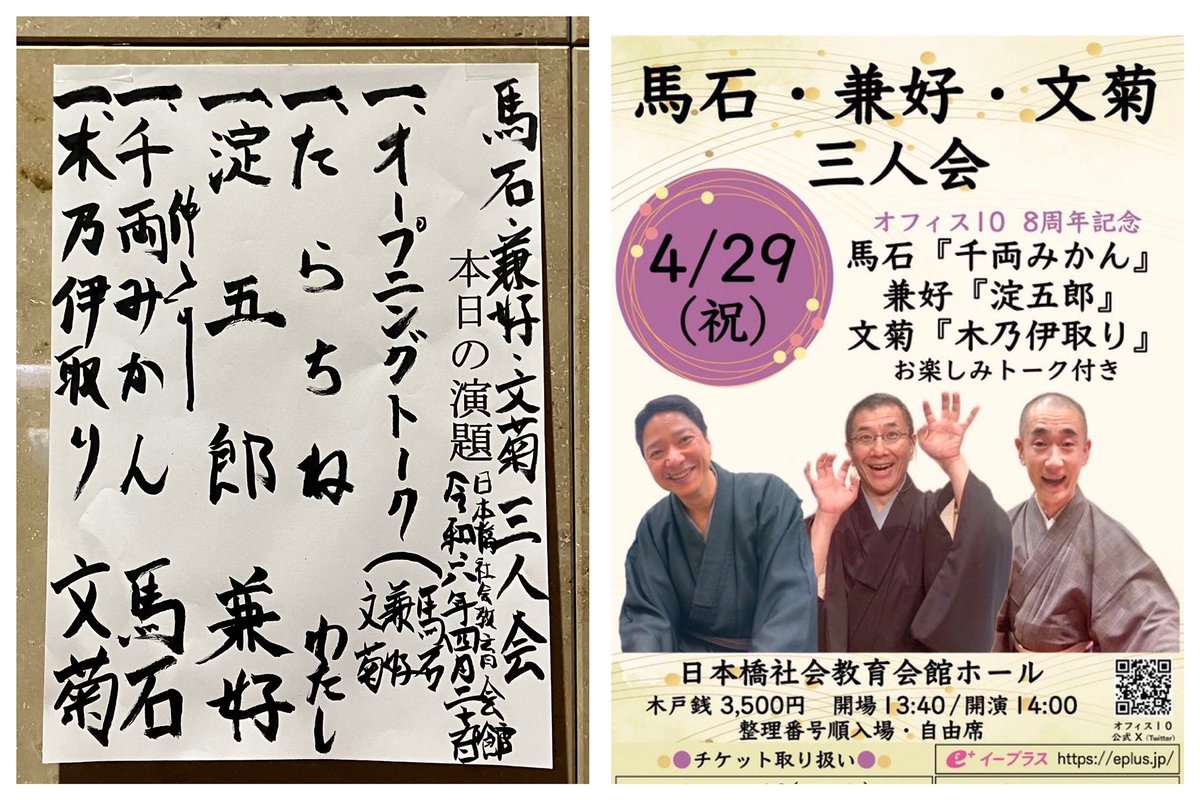 馬石、兼好、文菊 三人会
本日の演題
日本橋社会教育会館
令和六年四月二十九日
一、オープニングトーク(馬石 兼好 文菊
一、たらちね わたし
一、淀五郎 兼好
仲入り
一、千両みかん 馬石
一、木乃伊取り 文菊
馬石・兼好・文菊
三人会
4/29
(祝)
オフィス10 8周年記念
馬石『千両みかん』
兼好『淀五郎』
文菊『木乃伊取り』
お楽しみトーク付き
日本橋社会教育会館ホール
木戸銭 3,500円 開場13:40/開演14:00
整理番号順入場・自由席
オフィス10
公式X(Twitter)
チケット取り扱い
e+ イープラス https://eplus.jp/